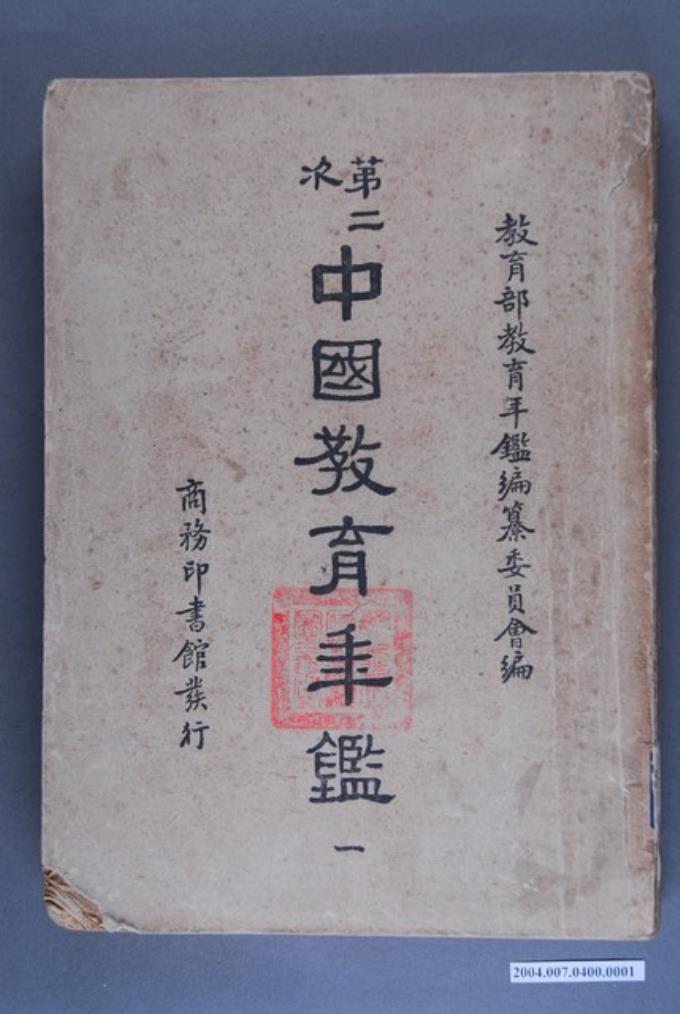 教育部教育年鑑編纂委員會編
第二次中國教育年鑑 一
商務印書館發行
2004.007.0400.0001